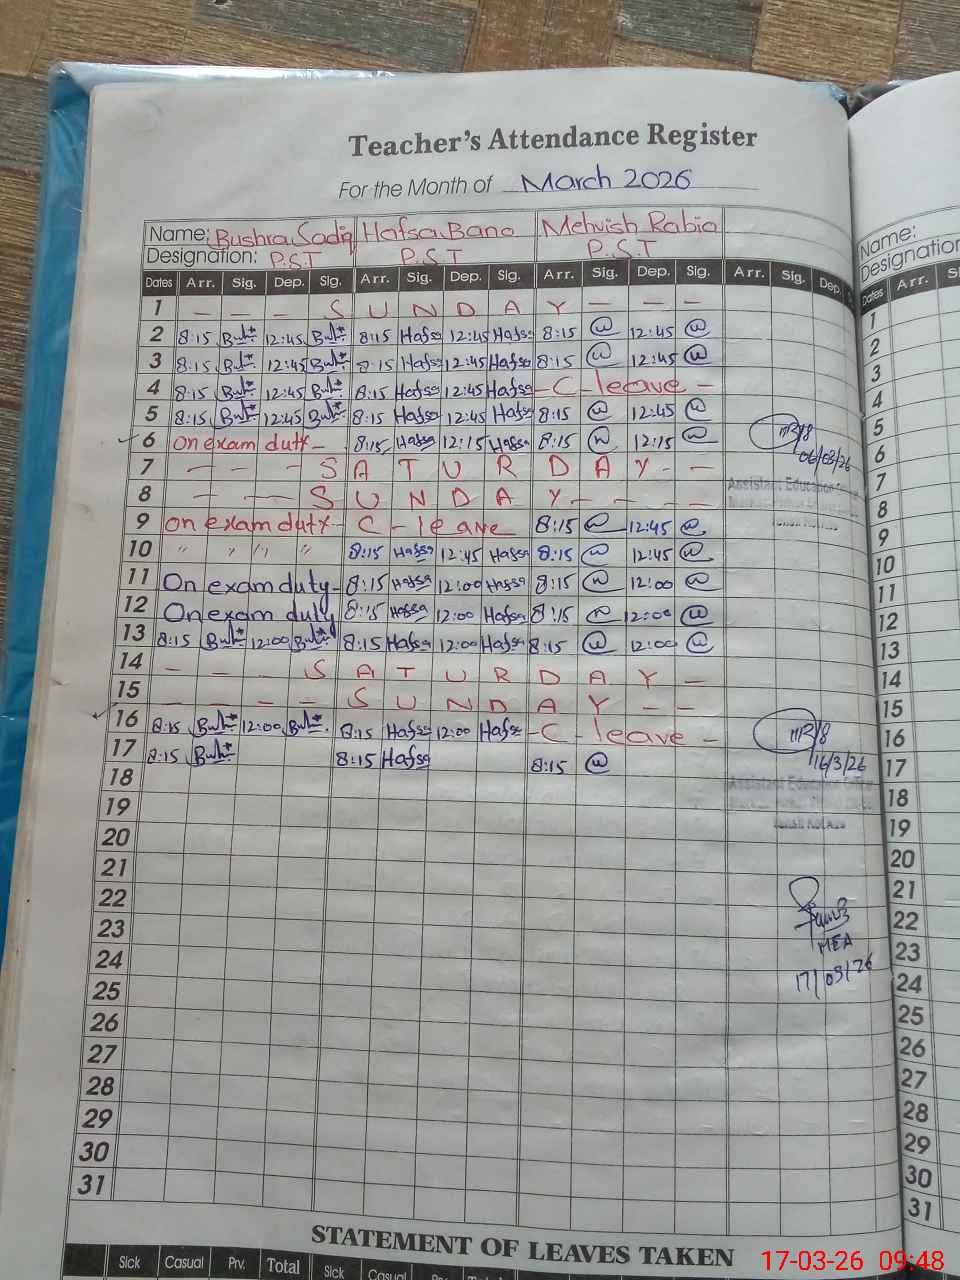 Teacher's Attendance Register
For the Month of March 2026
Name: Bushra Sadiq Hafsa Bano Mehvish Rabia
Designation: P.S.T P.S.T P.S.T
Dates Arr. Sig. Dep. Sig. Arr. Sig. Dep. Sig. Arr. Sig. Dep. Sig. Arr. Sig. Dep.
1 - - - S U N D A Y - - -
2 8:15 12:45 8:15 Hafsa 12:45 Hafsa 8:15 12:45
3 8:15 12:45 8:15 Hafsa 12:45 Hafsa 8:15 12:45
4 8:15 12:45 8:15 Hafsa 12:45 Hafsa - C - leave -
5 8:15 12:45 8:15 Hafsa 12:45 Hafsa 8:15 12:45
6 On exam duty - 8:15 Hafsa 12:15 Hafsa 8:15 12:15
06/03/26
7 - - - S A T U R D A Y - -
8 - - S U N D A Y - - - -
Assistant Education
9 on exam duty - C - leave 8:15 12:45
10 " " " " 8:15 Hafsa 12:45 Hafsa 8:15 12:45
11 On exam duty - 8:15 Hafsa 12:00 Hafsa 8:15 12:00
12 On exam duty 8:15 Hafsa 12:00 Hafsa 8:15 12:00
13 8:15 12:00 8:15 Hafsa 12:00 Hafsa 8:15 12:00
14 - - - S A T U R D A Y -
15 - - - - S U N D A Y - -
16 8:15 12:00 8:15 Hafsa 12:00 Hafsa - C - leave -
16/3/26
17 8:15 8:15 Hafsa 8:15
18
Assistant Education Officer
19
20
21
22
23
MEA
24
17/03/26
25
26
27
28
29
30
31
STATEMENT OF LEAVES TAKEN
Sick Casual Prv. Total Sick Casual
Name:
Designation
Dates Arr.
1
2
3
4
5
6
7
8
9
10
11
12
13
14
15
16
17
18
19
20
21
22
23
24
25
26
27
28
29
30
31
17-03-26 09:48